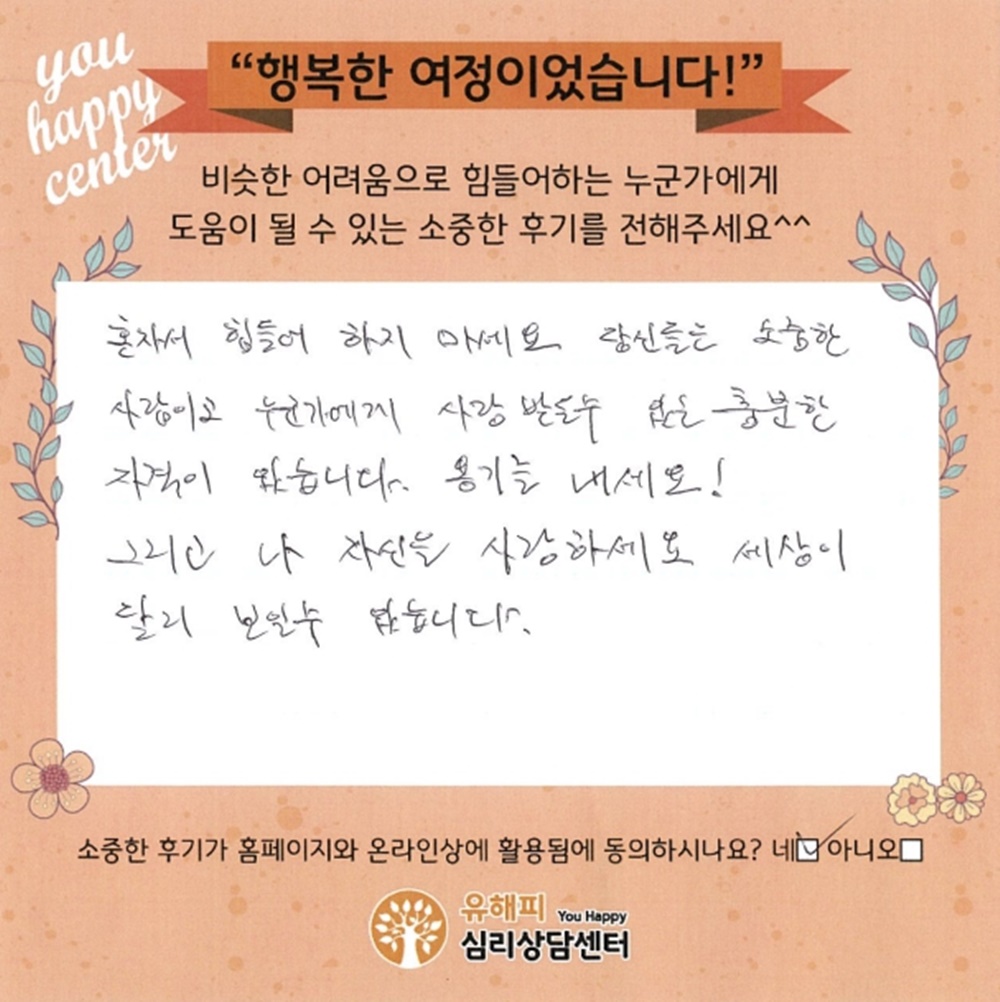 you
happy
center
“행복한 여정이었습니다!”
비슷한 어려움으로 힘들어하는 누군가에게
도움이 될 수 있는 소중한 후기를 전해주세요^^
혼자서 힘들어 하지 마세요 당신들은 소중한
사람이고 누군가에게 사랑 받을수 있는 충분한
자격이 있습니다. 용기를 내세요!
그리고 나 자신을 사랑하세요 세상이
달리 보일수 있습니다.
소중한 후기가 홈페이지와 온라인상에 활용됨에 동의하시나요? 네 아니오
유해피 You Happy
심리상담센터